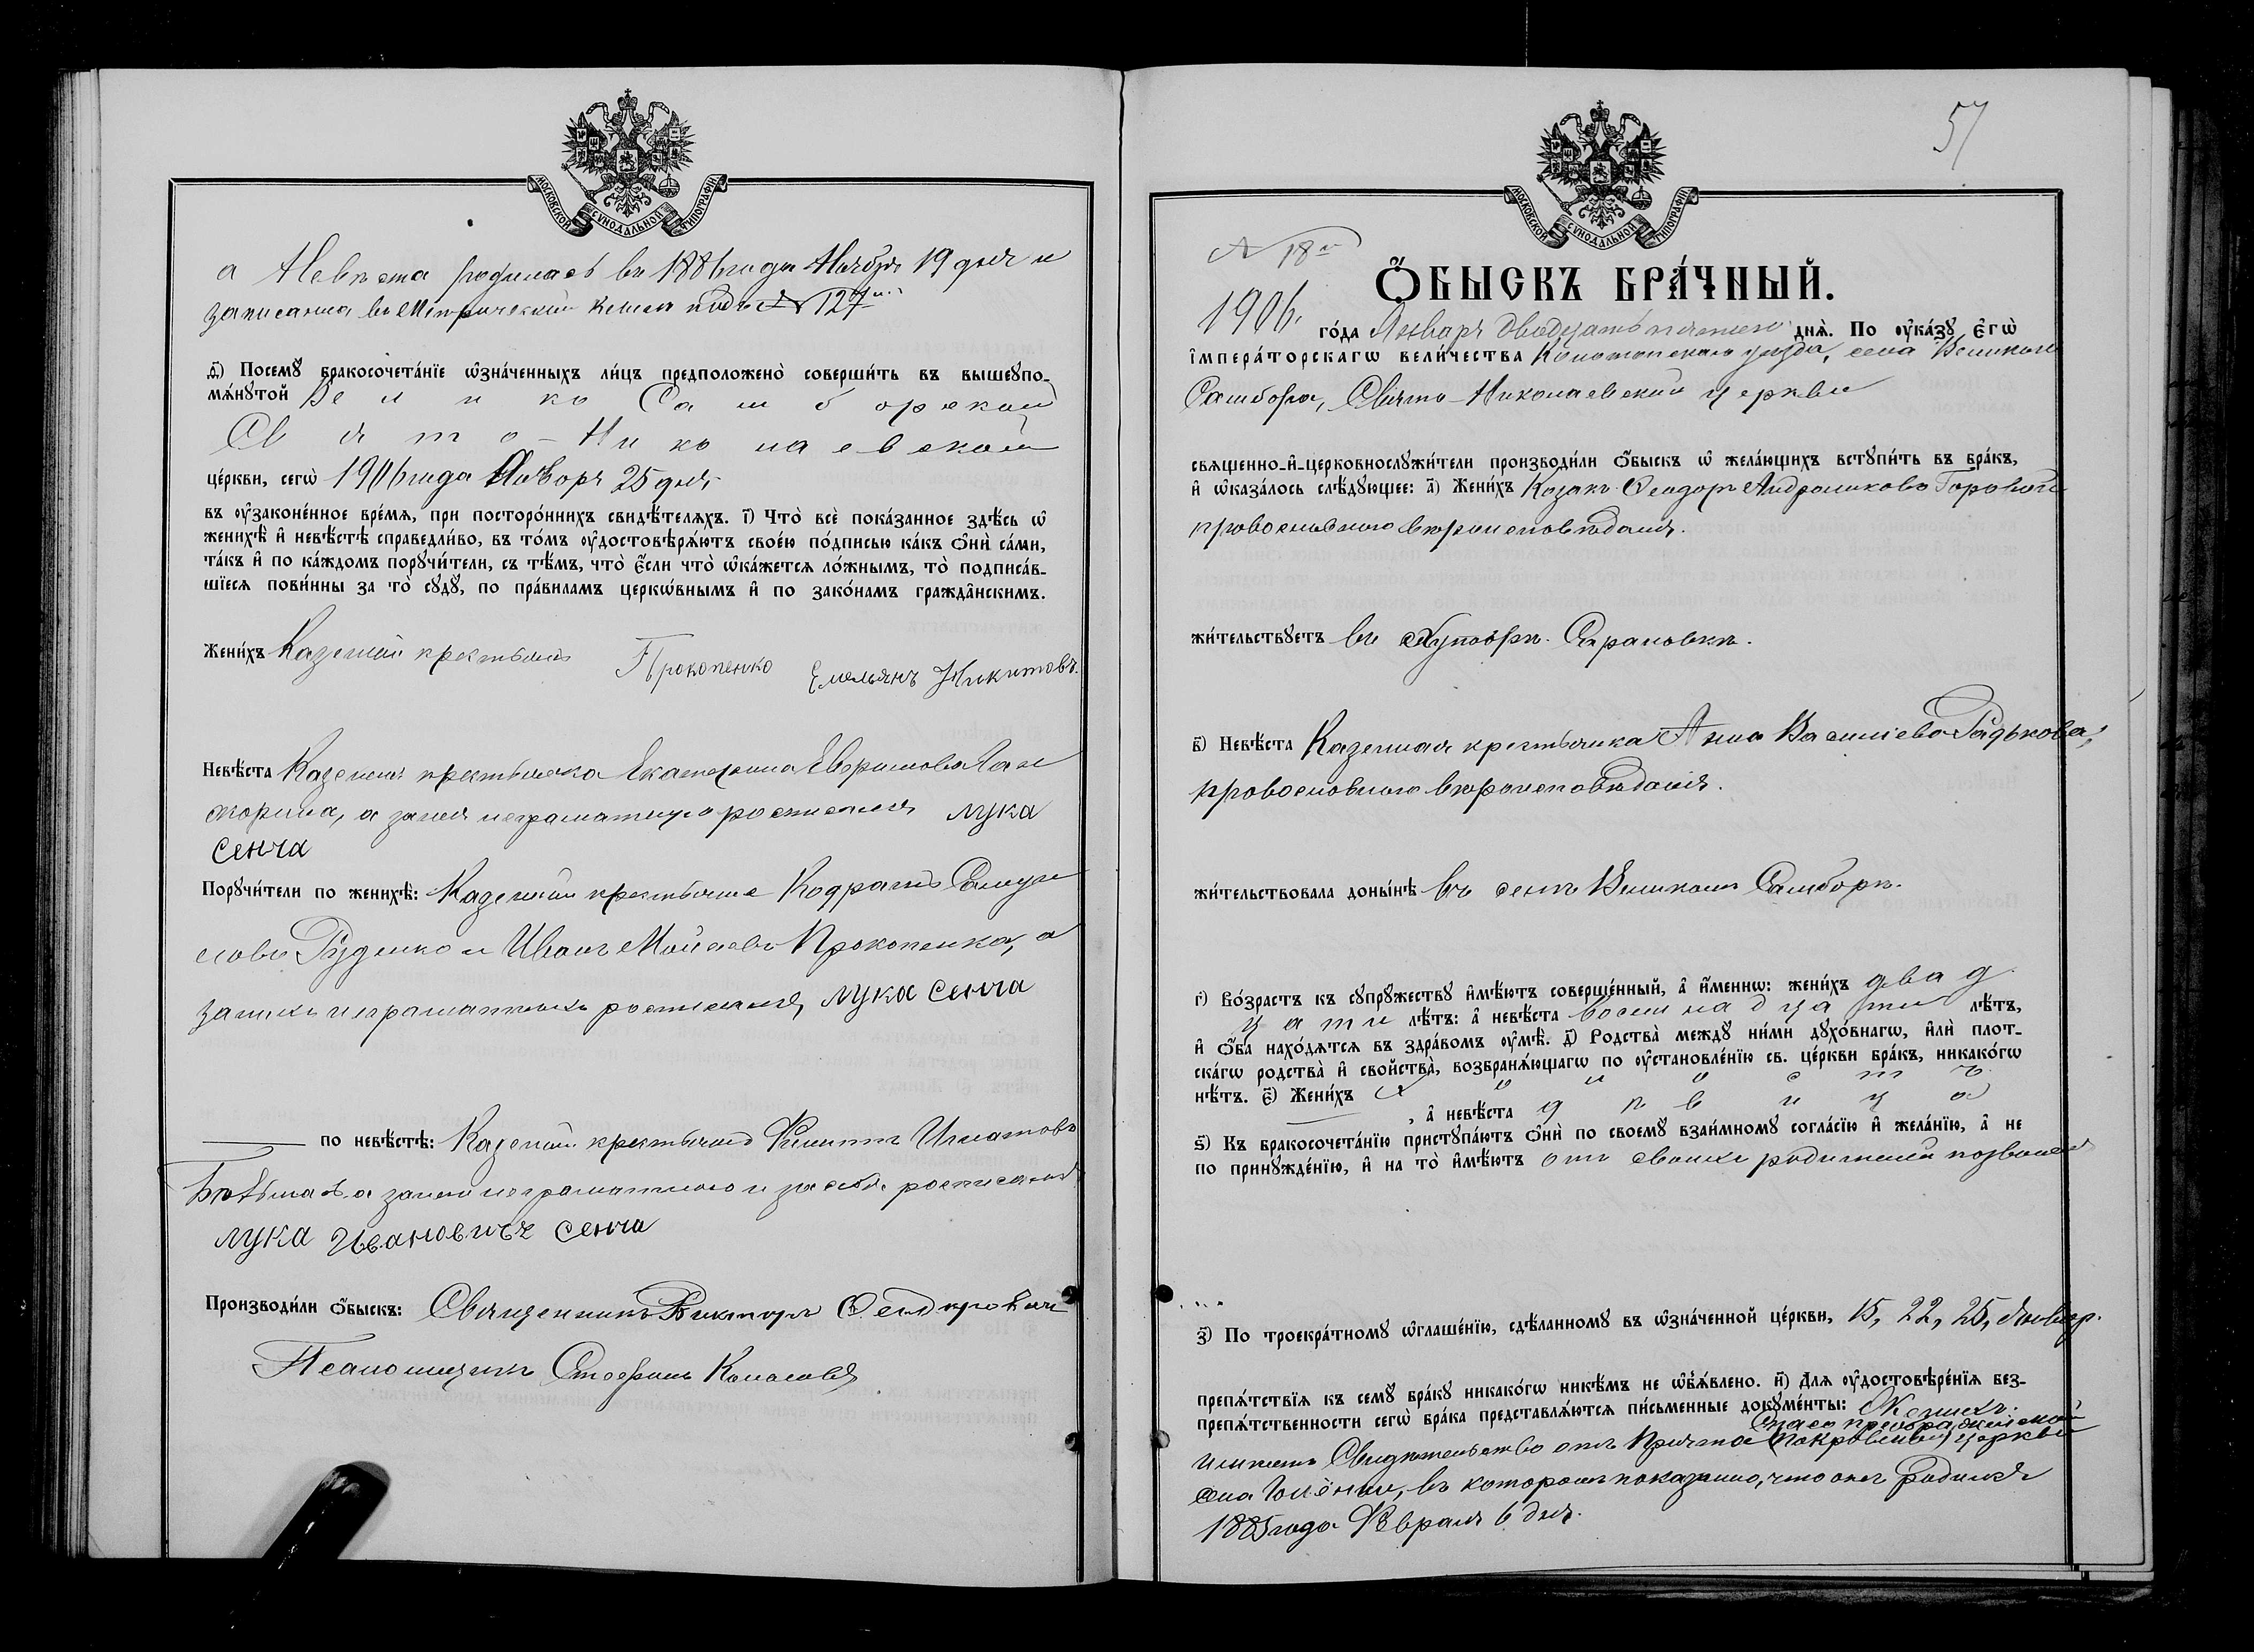 МОСКОВСКОЙ СѴНОДАЛЬНОЙ ТИПОГРАФІИ
а Невѣста родилась въ 1886 года Ноября 19 дня и
записанна въ Метрической книгѣ подъ № 127м.
д҃) Посемꙋ бракосочета́нїе ѡ҆зна́ченныхъ ли́цъ предположено̀ соверши́ть въ вышеꙋпо-
мѧ́нꙋтой Велико Самборской
Свято-Николаевской
це́ркви, сегѡ̀ 1906 года Января 25 дня
въ ᲂу҆законе́нное вре́мѧ, при посторо́ннихъ свидѣ́телѧхъ. і҃) Что̀ всѐ пока́занное здѣ́сь ѡ҆
женихѣ̀ и҆ невѣ́стѣ справедли́во, въ то́мъ ᲂу҆достовѣрѧ́ютъ свое́ю по́дписью ка́къ ѻ҆нѝ са́ми,
та́къ и҆ по ка́ждомъ порꙋчи́тели, съ тѣ́мъ, что̀ є҆́сли что̀ ѡ҆ка́жетсѧ ло́жнымъ, то̀ подписа́в-
шїесѧ пови́нны за то̀ сꙋдꙋ̀, по пра́виламъ церкѡ́внымъ и҆ по зако́намъ гражда̂нскимъ.
Жени́хъ Казенный крестьянинъ Прокопенко Емельянъ Никитовъ.
Невѣ́ста Казенная крестьянка Екатерина
а за нея неграматную росписался Лука
Сенча
Порꙋчи́тели по женихѣ̀: Казенный крестьяне Кодратъ Самуи
ловъ Руденко и Иванъ Мойсеевъ Прокопенко, а
за нихъ неграматныхъ росписался, Лука Сенча
по невѣ́стѣ: Казенный крестьянинъ Филиппъ Игнатовъ
а за него неграматнаго и за себя росписался
Лука Ивановичъ Сенча
Производи́ли ѻ҆́быскъ: Священникъ Викторъ
Псаломщикъ Стефанъ
57
МОСКОВСКОЙ СѴНОДАЛЬНОЙ ТИПОГРАФІИ
№ 18й
Ѻ҆́БЫСКЪ БРА́ЧНЫЙ.
1906. го́да Января двадцать пятаго днѧ̀. По ᲂу҆ка́зꙋ є҆гѡ̀
і҆мпера́торскагѡ вели́чества Конотопскаго уѣзда, села Великаго
Самбора, Свято-Николаевской церкви
свѧщенно-и҆-церковнослꙋжи́тели производи́ли ѻ҆́быскъ ѡ҆ жела́ющихъ встꙋпи́ть въ бра́къ,
и҆ ѡ҆каза́лось слѣ́дꙋющее: а҃) Жени́хъ Козакъ Ѳеодоръ Андрониковъ Горовой
православнаго вѣроисповѣданія.
жи́тельствꙋетъ въ Хуторѣ
в҃) Невѣ́ста Казенная крестьянка Анна Василіева Радькова,
православнаго вѣроисповѣданія.
жи́тельствовала доны́нѣ въ селѣ Великомъ Самборѣ.
г҃) Во́зрастъ къ сꙋпрꙋ́жествꙋ и҆мѣ́ютъ соверше́нный, а҆ и҆́меннѡ: жени́хъ двад
цати лѣ́тъ: а҆ невѣ́ста восемнадцати лѣ́тъ,
и҆ ѻ҆́ба нахо́дѧтсѧ въ здра́вомъ ᲂу҆мѣ̀. д҃) Родства̀ междꙋ̀ ни́ми дꙋхо́внагѡ, и҆лѝ плот-
ска́гѡ родства̀ и҆ свойства̀, возбранѧ́ющагѡ по ᲂу҆становле́нїю св. це́ркви бра́къ, никако́гѡ
нѣ́тъ. є҃) Жени́хъ холостъ
, а҆ невѣ́ста дѣвица
ѕ҃) Къ бракосочета́нїю пристꙋпа́ютъ ѻ҆нѝ по своемꙋ̀ взаи́мномꙋ согла́сїю и҆ жела́нїю, а҆ не
по принꙋжде́нїю, и҆ на то̀ и҆мѣ́ютъ отъ своихъ родителей позволеніе
з҃) По троекра́тномꙋ ѡ҆глаше́нїю, сдѣ́ланномꙋ въ ѡ҆зна́ченной це́ркви, 15, 22, 25, Январ.
препѧ́тствїѧ къ семꙋ̀ бра́кꙋ никако́гѡ никѣ́мъ не ѡ҆б̾ѧ́влено. и҃) Длѧ ᲂу҆достовѣре́нїѧ без-
препѧ́тственности сегѡ̀ бра́ка представлѧ́ютсѧ пи́сьменные докꙋме́нты: Женихъ.
Спасо преображенской
имѣетъ Свидѣтельство отъ Причта (Покровской) церкви
села въ которомъ показанно, что онъ родился
1885 года Февраля 6 дня.